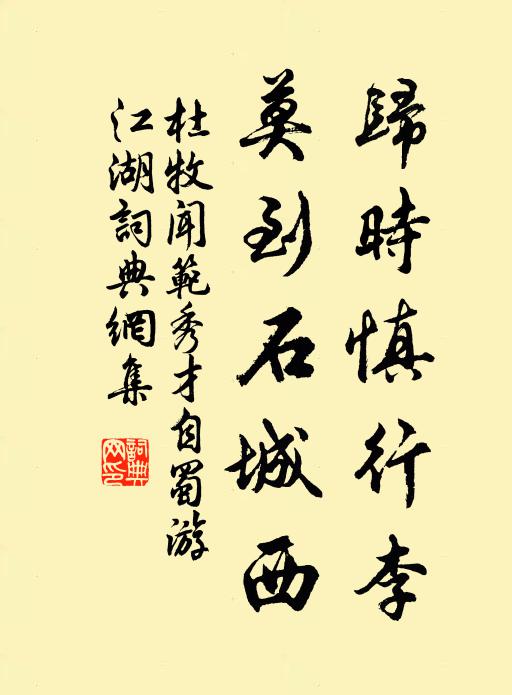 歸時慎行李
莫到石城西
杜牧聞範秀才自蜀游
江湖詞典網集
詞典
网印